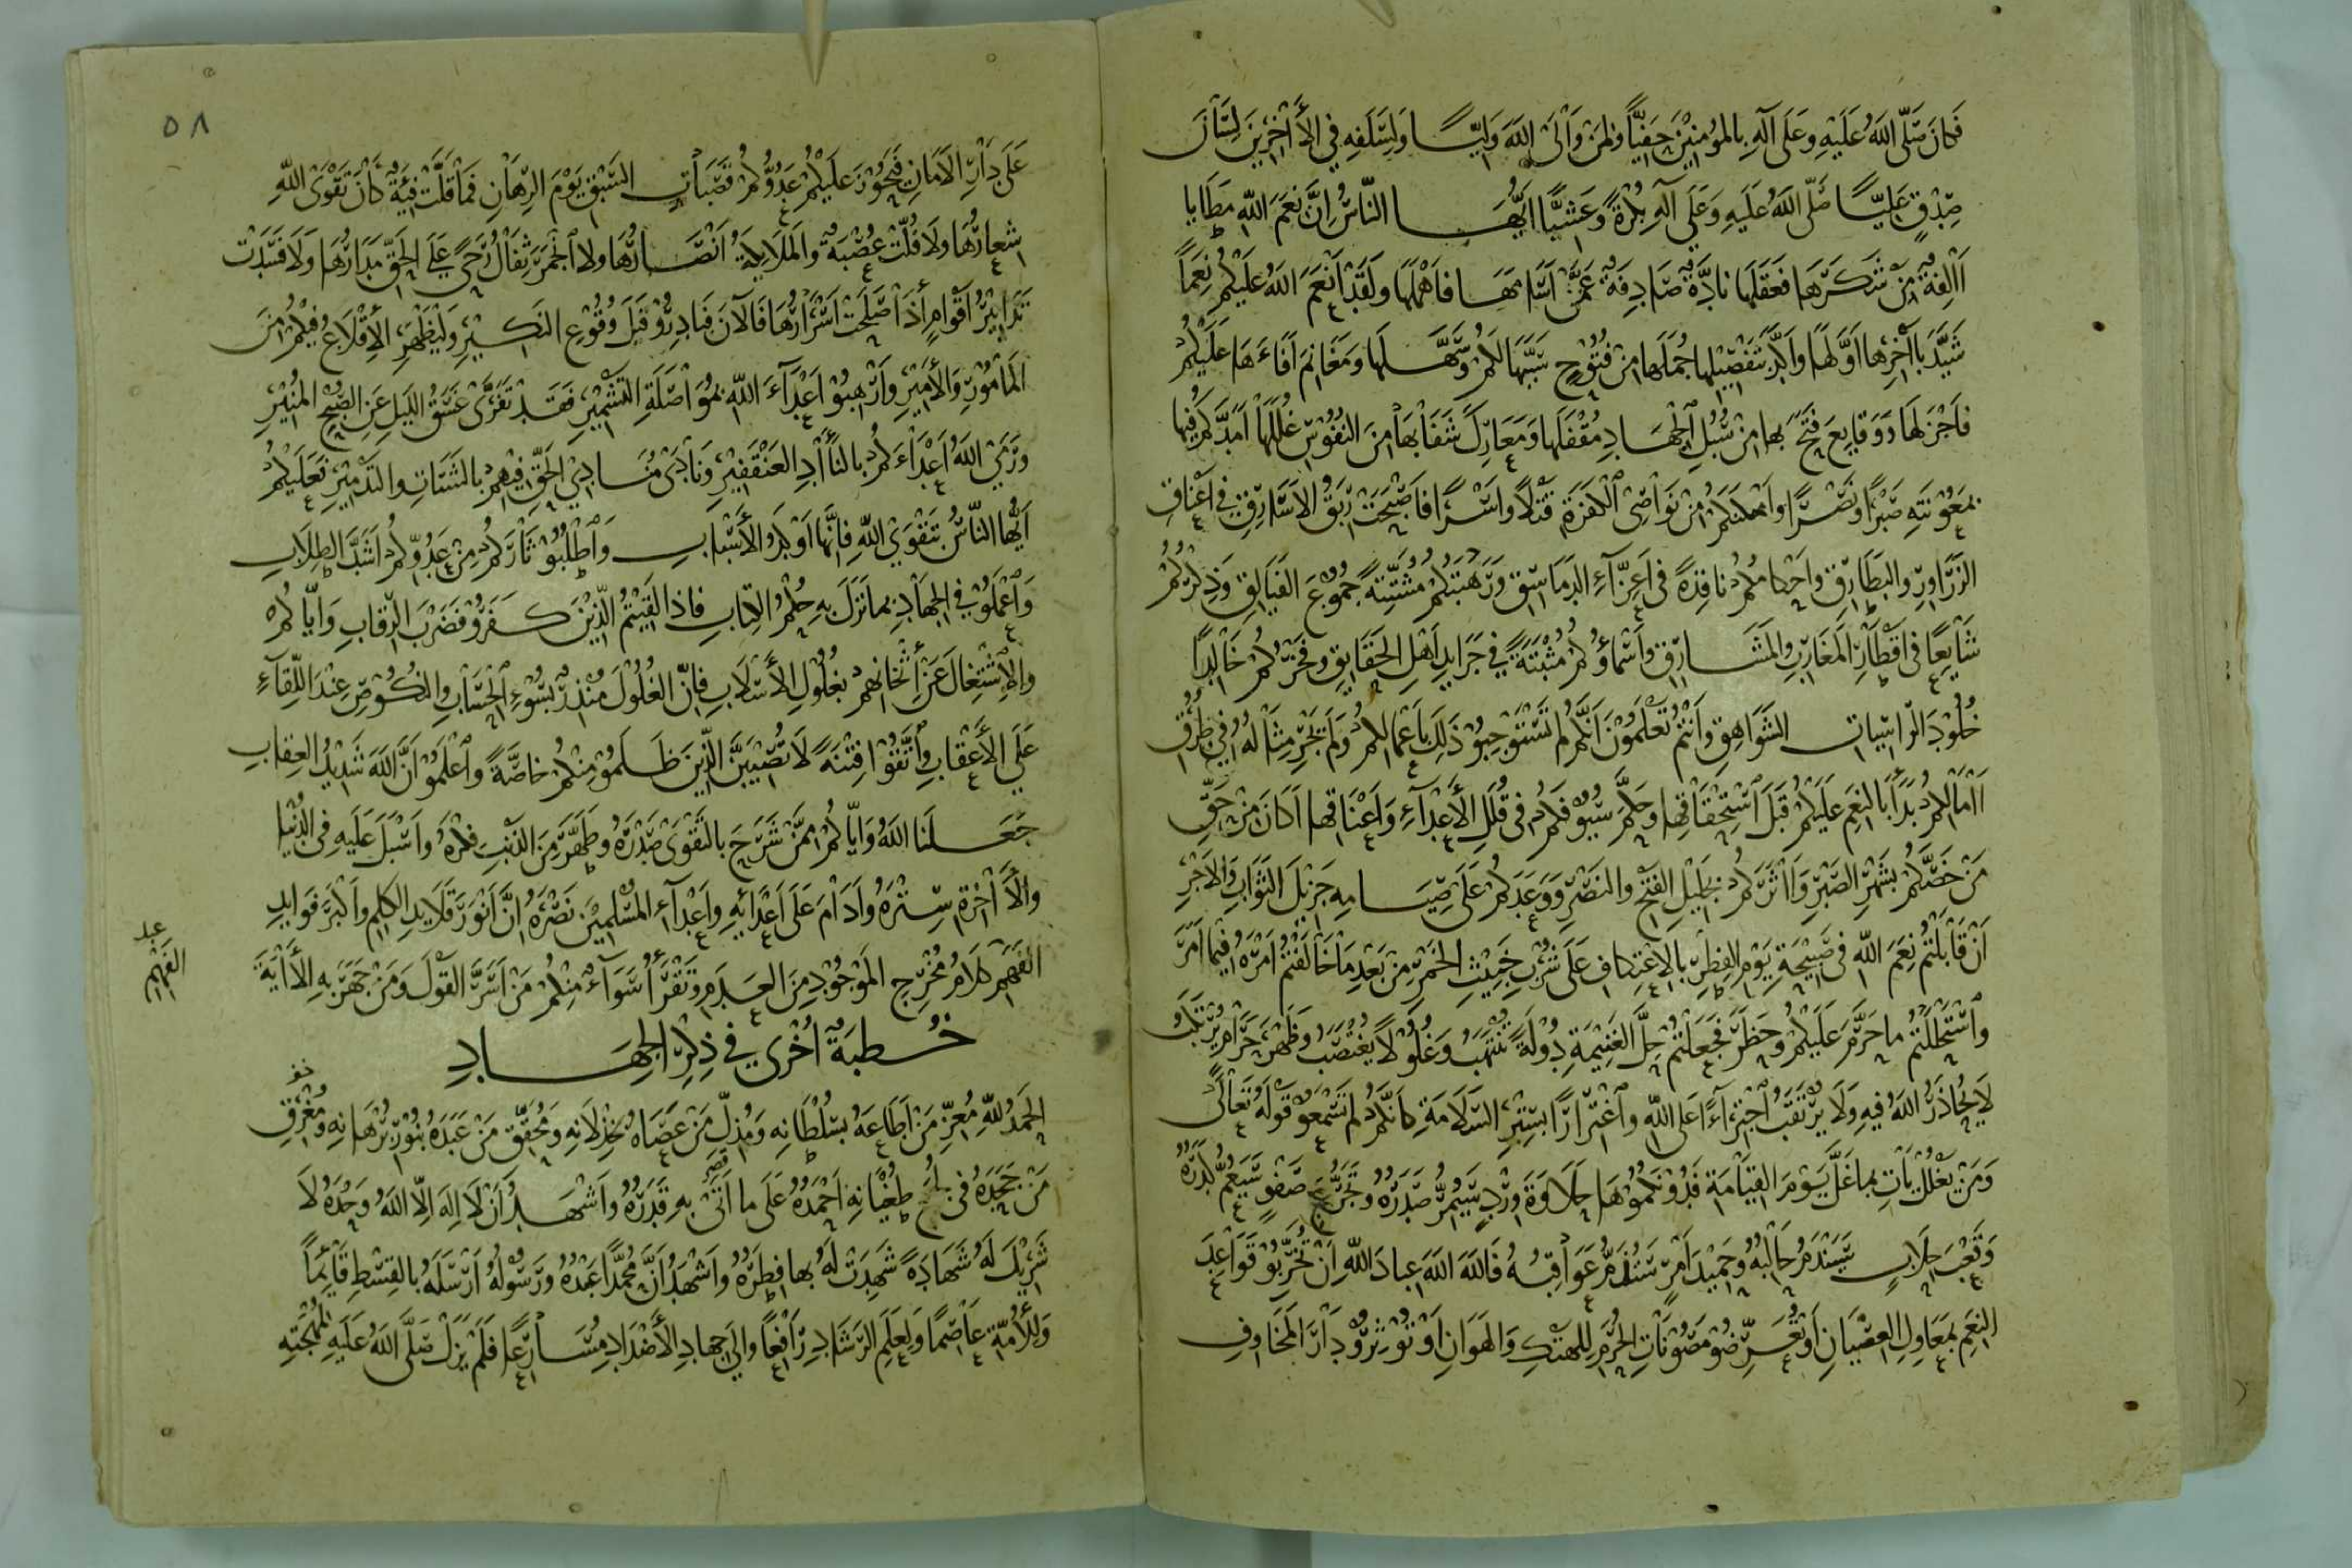 فكان صلى الله عليه وعلى آله بالمؤمنين حفيا ولمن والى الله وليا ولسلفه في الآخرين لسان
صدق عليا صلى الله عليه وعلى آله بكرة وعشيا ايها الناس ان نعم الله مطايا
آلفة من شكرها فعقلها نادة صادفة عمن اسامها فاهملها ولقد انعم الله عليكم نعما
شيد بآخرها اولها واكد بتفصيلها جملها من فتوح سببها لكم وسهلها ومغانم افاءها عليكم
فاجزلها ووقايع فتح بها من سبل الجهاد مقفلها ومعارك شفا بها من النفوس غللها امدكم فيها
بمعونته صبرا ونصرا وامكنكم من نواصى الكفرة قتلا واسرا فاصبحت ربق الاسار في اعناق
الزراور والبطارق واحكامكم نافذة في اعزاء الدماسق ورهبتكم مشتتة جموع الفيالق وذكركم
شايعا في اقطار المغارب والمشارق واسماؤكم مثبتة في جرايد اهل الحقايق وفخركم خالدا
خلود الراسيات الشواهق وانتم تعلمون انكم لم تستوجبو ذلك باعمالكم ولم يجر مثاله في طرق
آمالكم بدأ بالنعم عليكم قبل استحقاقها وحكم سيوفكم في قلل الأعداء واعناقها اكان من حق
من خصكم بشهر الصبر وآثركم بجليل الفتح والنصر ووعدكم على صيامه جزيل الثواب والاجر
ان قابلتم نعم الله في صبيحة يوم الفطر بالاعتكاف على شرب خبيث الخمر من بعد ما خالفتم امره فيما امر
واستحللتم ما حرم عليكم وحظر فجعلتم حل الغنيمة دولة تنتهب وغلولا يغتصب وظهر حرام يرتكب
لا يحاذر الله فيه ولا يرتقب اجتراء على الله واغترارا بستر السلامة كانكم لم تسمعو قوله تعالى
ومن يغلل يأت بما غل يوم القيامة فدونكموها حلاوة ورد سيمر صدره وتجرع صفو سيعم كدره
وقعب حلاب سيندم حالبه وحميد امر ستذم عواقبه فالله الله عباد الله ان تخربو قواعد
النعم بمعاول العصيان او تعرضو مصونات الحرم للهتك والهوان او توثرو دار المخاوف
٥٨
على دار الامان فتحوز عليكم عدوكم قصبات السبق يوم الرهان فما قلت فئة كان تقوى الله
شعارها ولا فلت عصبة والملائكة انصارها ولا انجمر ثفال رحى على الحق مدارها ولا فسدت
تدابير اقوام اذا صلحت اسرارها فالآن فبادرو قبل وقوع النكير وليظهر الإقلاع فيكم من
المامور والأمير وارهبو اعداء الله بمواصلة التشمير فقد تفرى غسق الليل عن الصبح المنير
ورمى الله اعداءكم بالنآد العنقفير ونادى منادي الحق فيهم بالشتات والتدمير فعليكم
ايها الناس بتقوى الله فانها اوكد الأسباب واطلبو ثأركم من عدوكم اشد الطلاب
واعملو في الجهاد بما نزل به حكم الكتاب فاذا لقيتم الذين كفرو فضرب الرقاب واياكم
والاشتغال عن اثخانهم بغلول الأسلاب فان الغلول منذر بسوء الحساب والنكوص عند اللقاء
على الأعقاب واتقوا فتنة لا تصيبن الذين ظلمو منكم خاصة واعلمو ان الله شديد العقاب
جعلنا الله واياكم ممن شرح بالتقوى صدره وطهر من الذنب فكره واسبل عليه في الدنيا
والآخرة ستره وادام على اعدائه واعداء المسلمين نصره ان انور قلايد الكلم واكبر فوايد
الفهم كلام مخرج الموجود من العدم وتقرأ سواء منكم من اسر القول ومن جهر به الآية
خطبة اخرى في ذكر الجهاد
الحمد لله معز من اطاعه بسلطانه ومذل من عصاه بخذلانه ومحقق من عبده بنور برهانه ومغرق
من جحده في لجج طغيانه احمده على ما اتى به قدره واشهد ان لا اله الا الله وحده لا
شريك له شهادة شهدت له بها فطره واشهد ان محمدا عبده ورسوله ارسله بالقسط قائما
وللأمة عاصما ولعلم الرشاد رافعا والى جهاد الأضداد مسارعا فلم يزل صلى الله عليه لمهجته